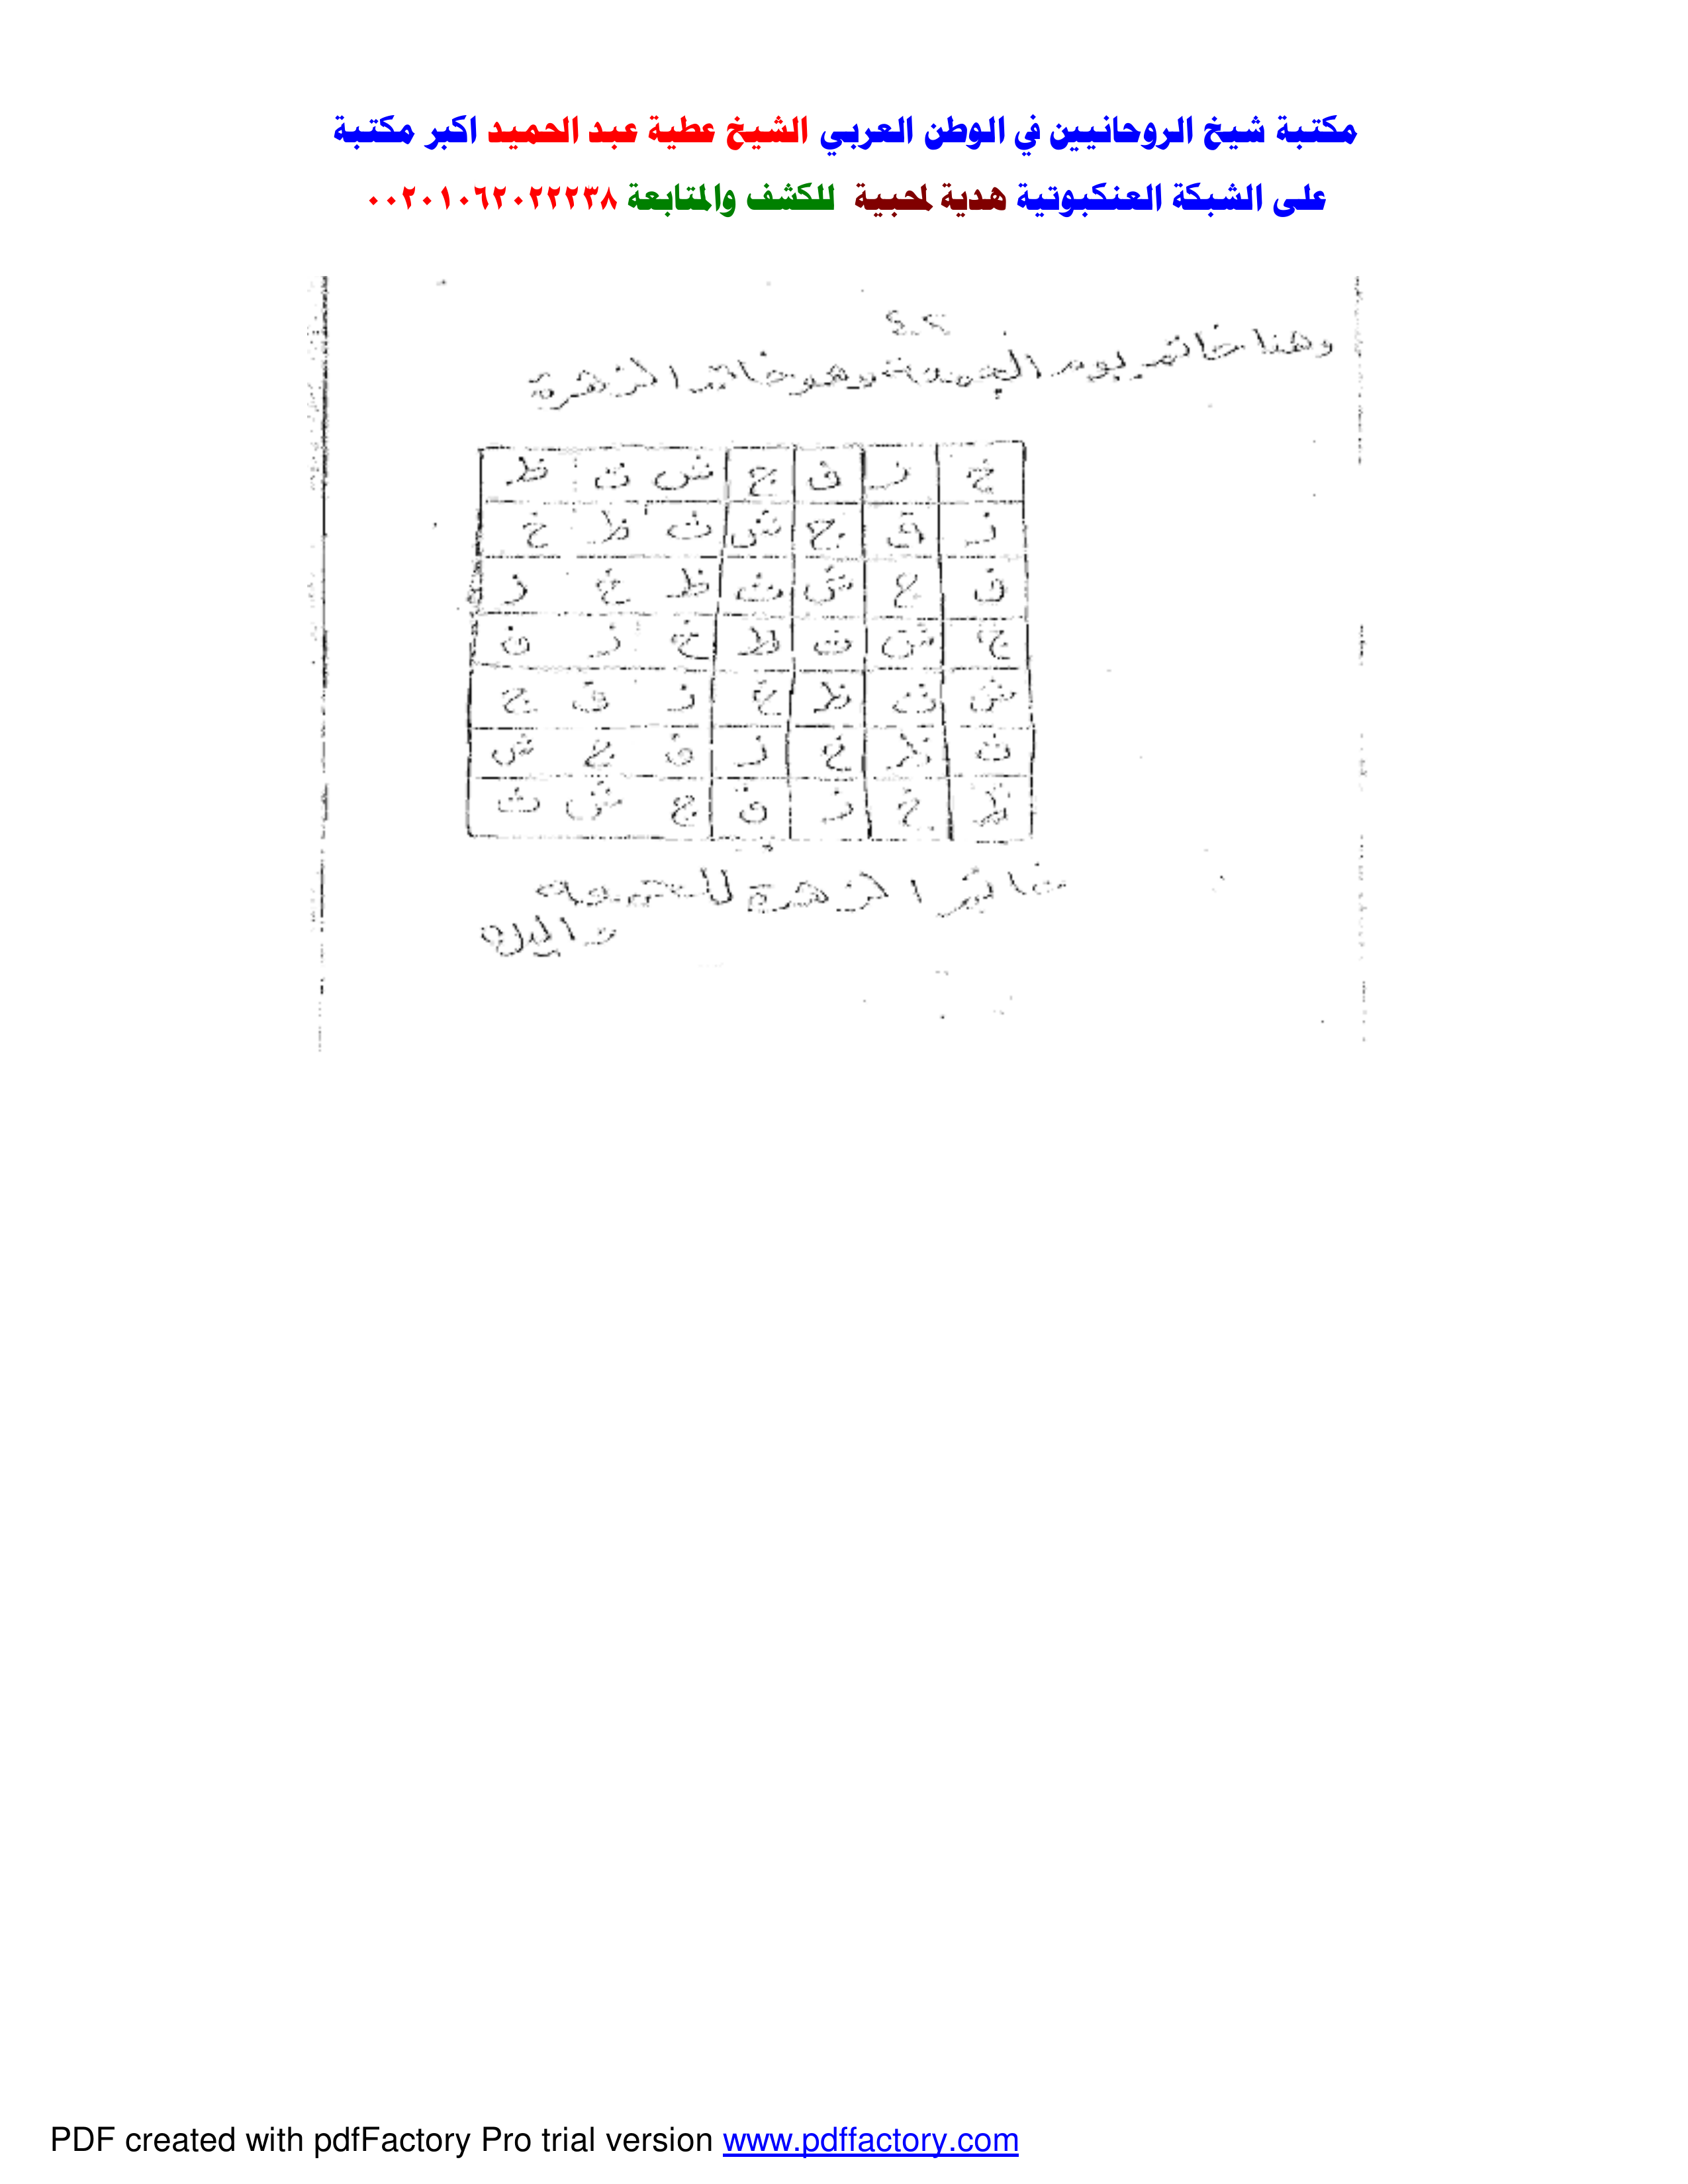 مكتبة شيخ الروحانيين في الوطن العربي الشيخ عطية عبد الحميد اكبر مكتبة
على الشبكة العنكبوتية هدية لمحبية للكشف والمتابعة ٠٠٢٠١٠٦٢٠٢٢٢٣٨
وهنا خاتم يوم الجمعة وهو خاتم الزهرة
خ ز ف ج ش ث ظ
ز ف ج ش ث ظ خ
ف ج ش ث ظ خ ز
ج ش ث ظ خ ز ف
ش ث ظ خ ز ف ج
ث ظ خ ز ف ج ش
ظ خ ز ف ج ش ث
خاتم الزهرة للجمعه
PDF created with pdfFactory Pro trial version www.pdffactory.com